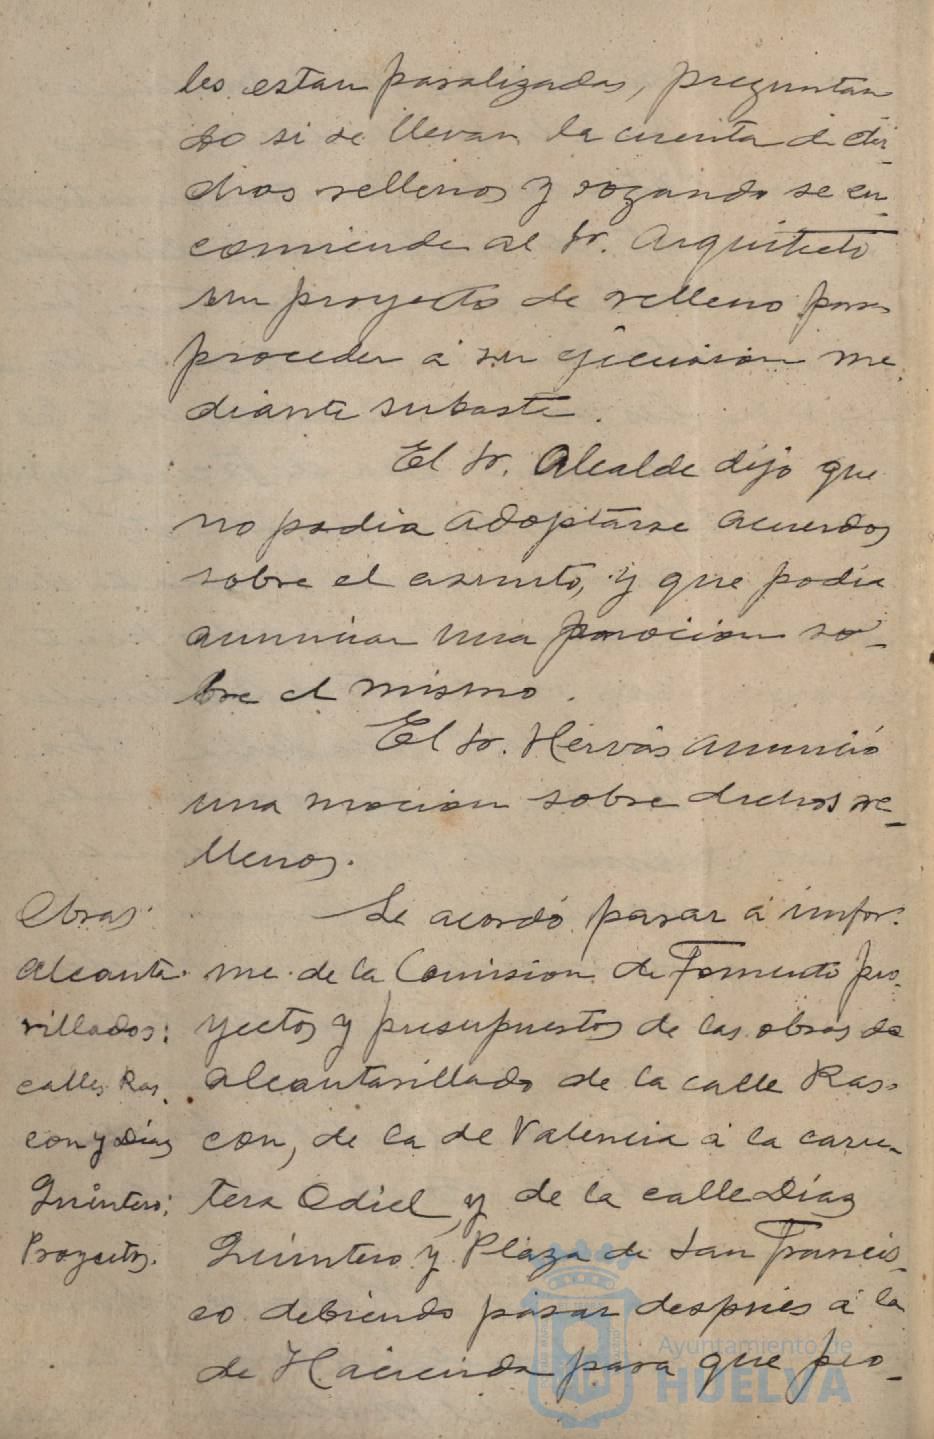 les estan paralizadas, preguntan
do si se llevan la cuenta de di-
chos rellenos y rogando se en-
comiende al Sr. Arquitecto
un proyecto de relleno para
proceder á su ejecucion me
diante subasta.
El Sr. Alcalde dijo que
no podia adoptarse acuerdos
sobre el asunto, y que podia
anunciar una mocion so-
bre el mismo.
El Sr. Hervás anunció
una mocion sobre dichos re-
llenos.
Obras
Alcanta
rillados:
calles Ras
con y Diaz
Quintero:
Proyectos.
Se acordó pasar á infor-
me de la Comision de Fomento pro-
yectos y presupuestos de las obras de
alcantarillado de la calle Ras-
con, de la de Valencia á la carre-
tera Odiel, y de la calle Diaz
Quintero y Plaza de San Francis-
co debiendo pasar despues á la
de Hacienda para que pro-
Ayuntamiento de
HUELVA